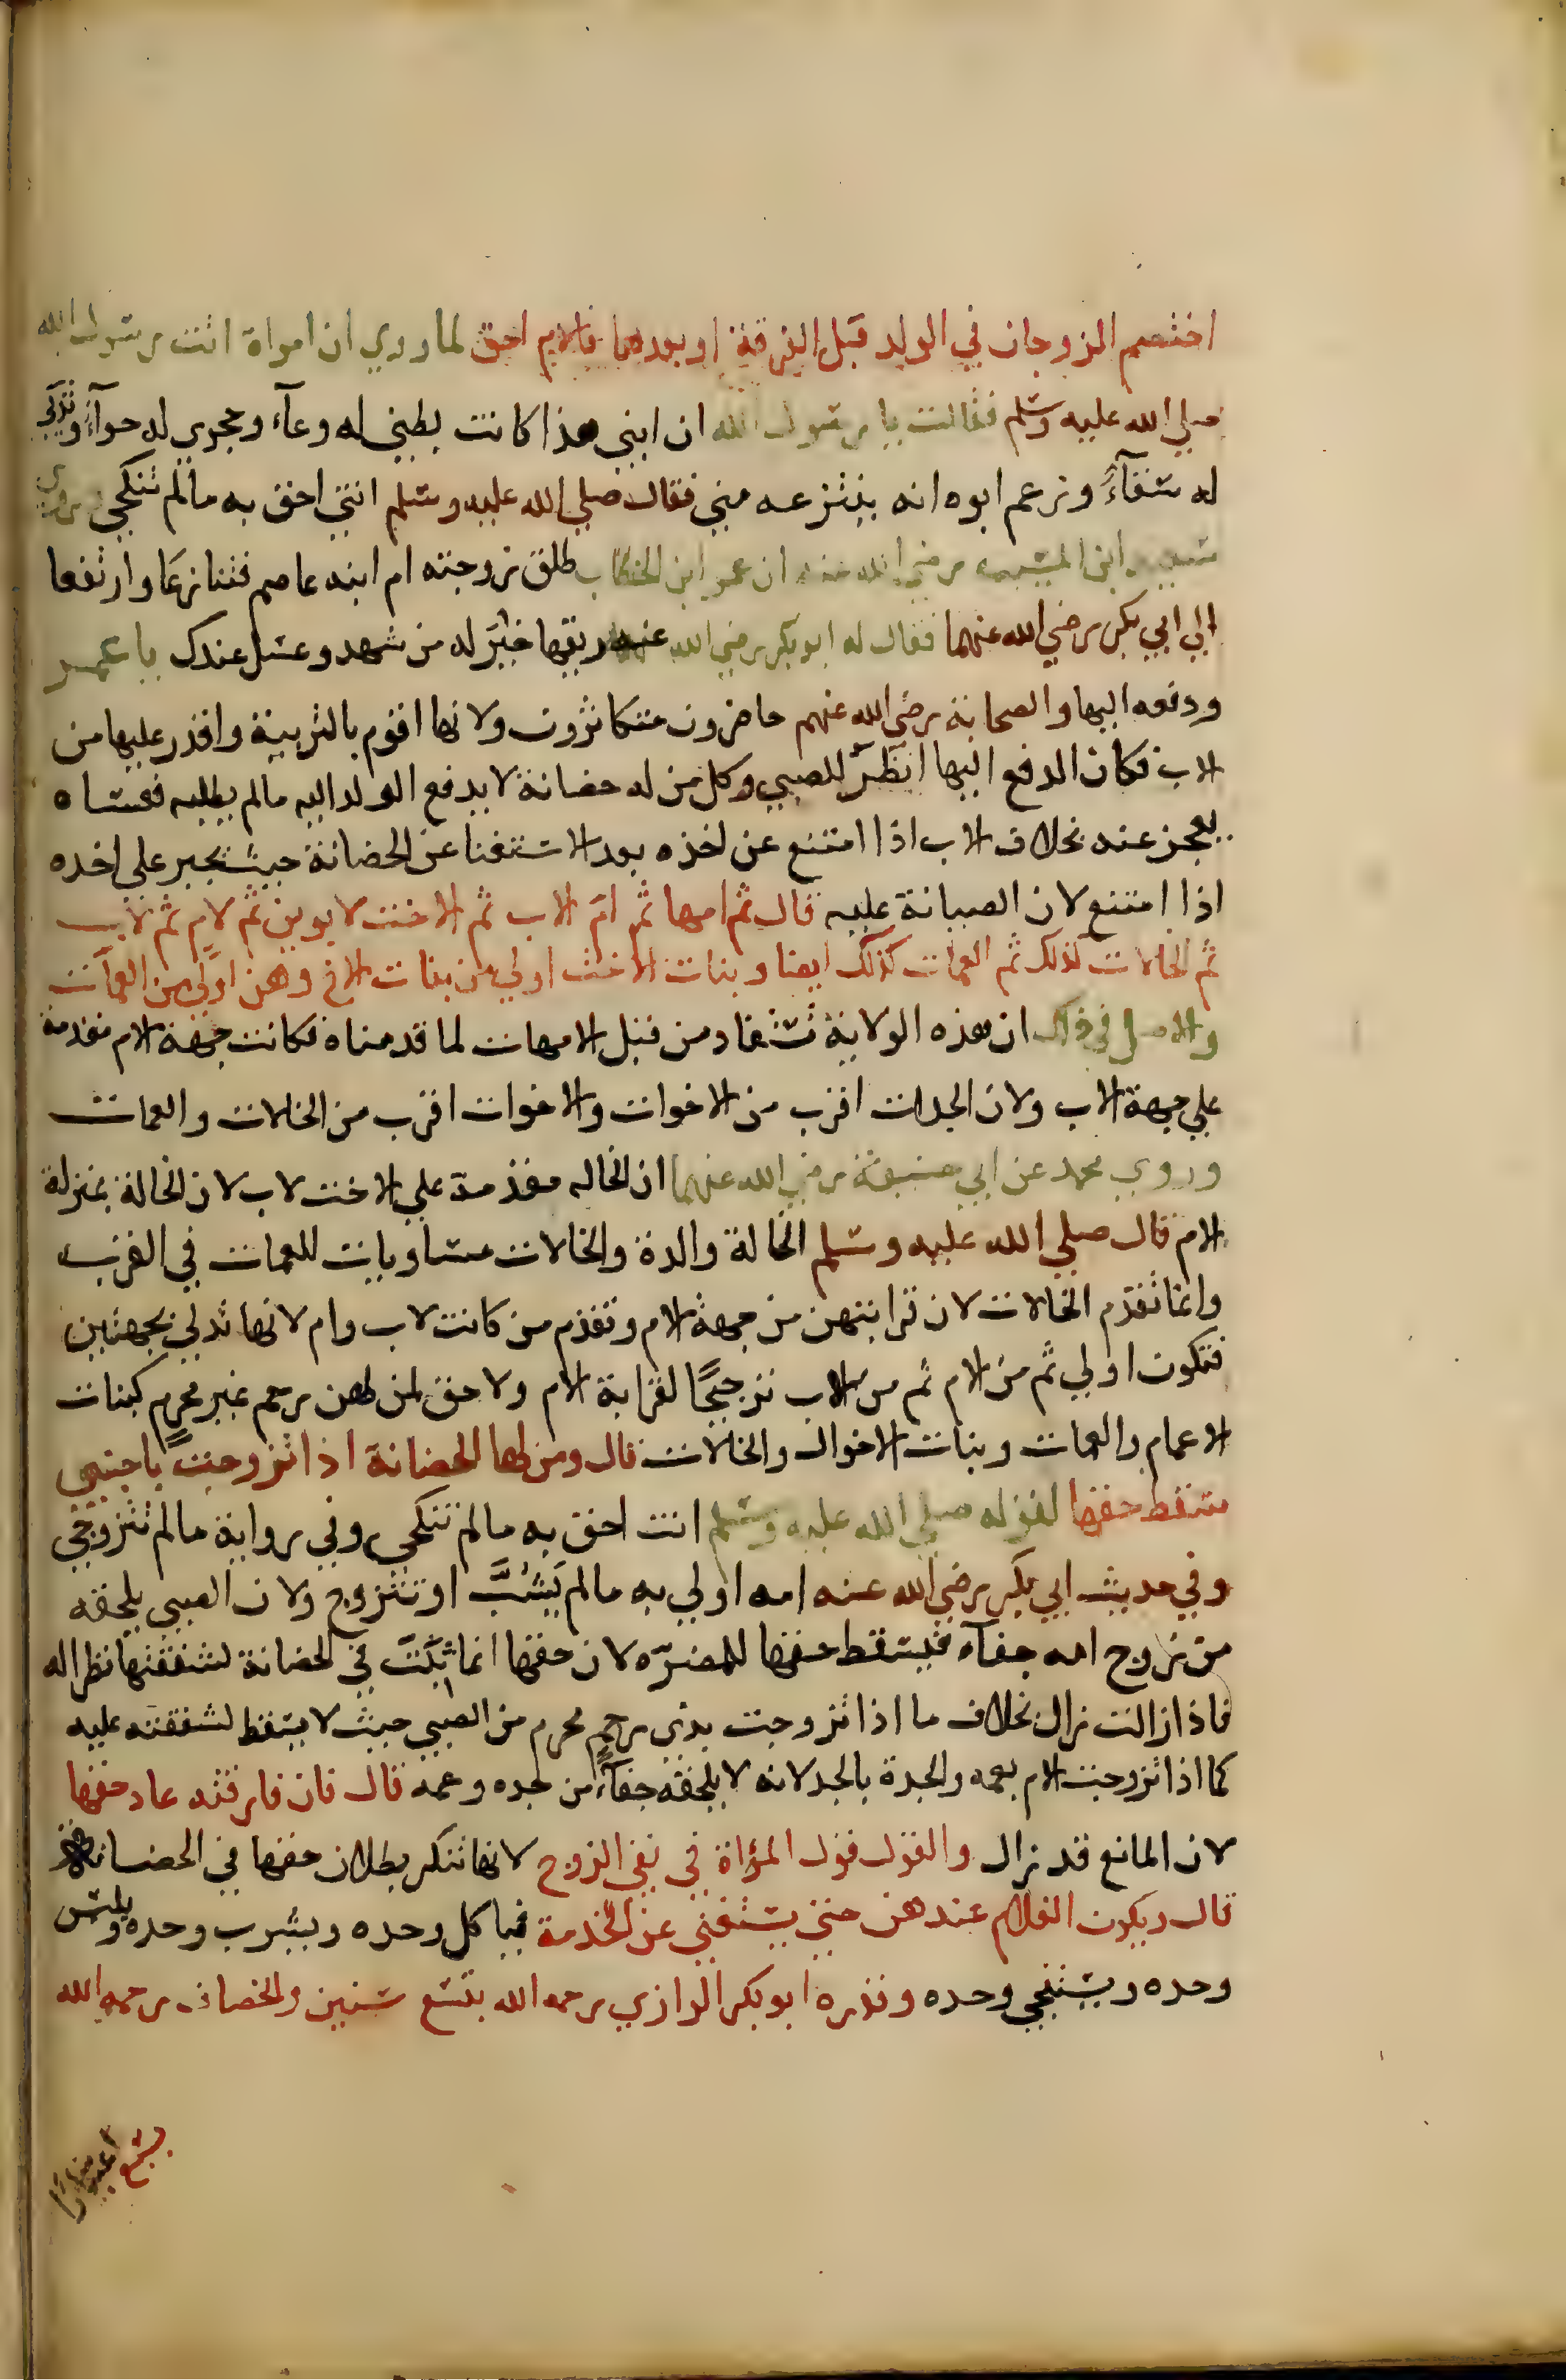 اختصم الزوجان في الولد قبل الفرقة او بعدها فالام احق لما روي ان امراة اتت رسول الله
صلي الله عليه وسلم فقالت يا رسول الله ان ابني هذا كانت بطني له وعآء وحجري له حوآء وثدي
له سقآء وزعم ابوه انه ينتزعه مني فقال صلي الله عليه وسلم انتي احق به مالم تنكحي وروي
سعيد ابن المسيب رضي الله عنه ان عمر ابن الخطاب طلق زوجته ام ابنه عاصم فتنازعا وارتفعا
الي ابي بكر رضي الله عنهما فقال له ابو بكر رضي الله عنه ريقها خير له من شهد وعسل عندك يا عمر
ودفعه اليها والصحابة رضي الله عنهم حاضرون متكاثرون ولانها اقوم بالتربية واقدر عليها من
الاب فكان الدفع اليها انظر للصبي وكل من له حضانة لا يدفع الولد اليه مالم يطلبه فعساه
يعجز عنه بخلاف الاب اذا امتنع عن اخذه بعد الاستغنا عن الحضانة حيث يجبر علي اخده
اذا امتنع لان الصيانة عليه قال ثم امها ثم ام الاب ثم الاخت لابوين ثم لام ثم لاب
ثم الخالات كذلك ثم العمات كذلك ايضا وبنات الاخت اولي من بنات الاخ وهن اولي من العمات
والاصل في ذلك ان هذه الولاية تستفاد من قبل الامهات لما قدمناه فكانت جهة الام مقدمة
علي جهة الاب ولان الجدات اقرب من الاخوات والاخوات اقرب من الخالات والعمات
وروي محمد عن ابي حنيفة رضي الله عنهما ان الخاله مقدمة علي الاخت لاب لان الخالة بمنزلة
الام قال صلي الله عليه وسلم الخالة والدة والخالات متساويات للعمات في القرب
وانما تقدم الخالات لان قرابتهن من جهة الام وتقدم من كانت لاب وام لانها تدلي بجهتين
فتكون اولي ثم من الام ثم من الاب ترجيحًا لقرابة الام ولا حق لمن لهن رحم غير محرم كبنات
الاعمام والعمات وبنات الاخوال والخالات قال ومن لها الحضانة اذا تزوجت باجنبي
سقط حقها لقوله صلي الله عليه وسلم انت احق به مالم تنكحي وفي رواية مالم تتزوجي
وفي حديث ابي بكر رضي الله عنه امه اولي به مالم يَشُبَّ او تتزوج ولان الصبي يلحقه
من تزوج امه جفآء فيسقط حقها للمضرّه لان حقها انما ثبت في الحضانة لشفقتها نظرا له
فاذا زالت زال بخلاف ما اذا تزوجت بذي رحمٍ محرم من الصبي حيث لا يسقط لشفقته عليه
كما اذا تزوجت الام بعمه والجدة بالجد لانه لا يلحقه جفآءً من جده وعمه قال فان فارقته عاد حقها
لان المانع قد زال والقول قول المرؤاة في نفي الزوج لانها تنكر بطلان حقها في الحضانة
قال ويكون الغلام عندهن حتي يستغني عن الخدمة فيا كل وحده ويشرب وحده ويلبس
وحده ويستنجي وحده وقدره ابو بكر الرازي رحمه الله بتسع سنين والخصاف رحمه الله
بسبع اعتبارًا